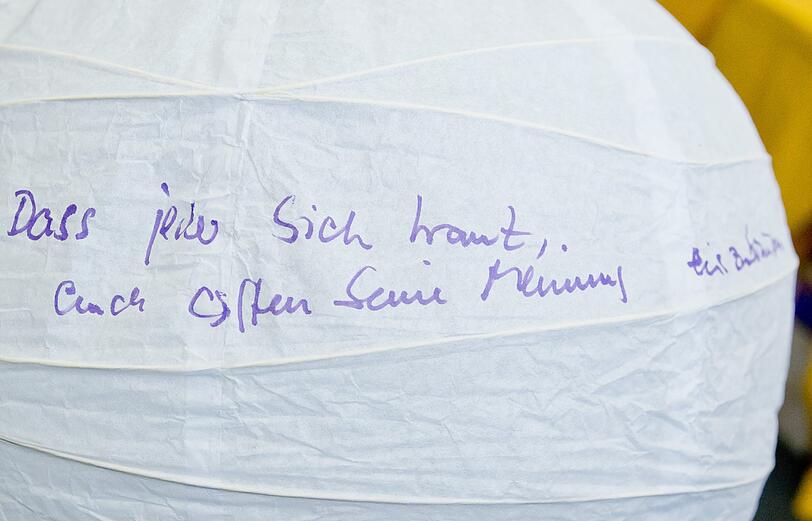 Dass jeder Sich traut,
auch offen Seine Meinung